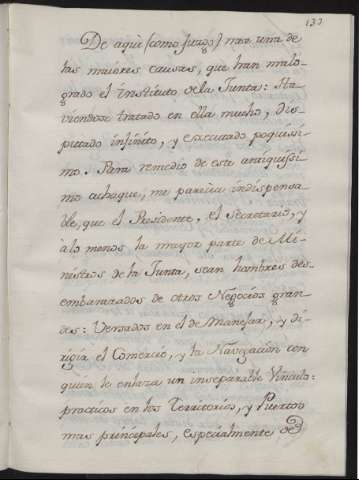 137
De aqui [como juzgo] nace una de
las maiores causas, que han malo-
grado el instituto de la Junta: Ha-
viendose tratado en ella mucho, dis-
putado infinito, y executado poquissi-
mo. Para remedio de este antiquissi-
mo achaque, me parecia indispensa-
ble, que el Presidente, el Secretario, y
a lo menos la mayor parte de Mi-
nistros de la Junta, sean hombres des-
embarazados de otros Negocios gran-
des: Versados en el de Manejar, y di-
rigir el Comercio, y la Navegacion con
quien le enlaza un inseparable Vinculo:
practicos en los Territorios, y Puertos
mas principales, especialmente de